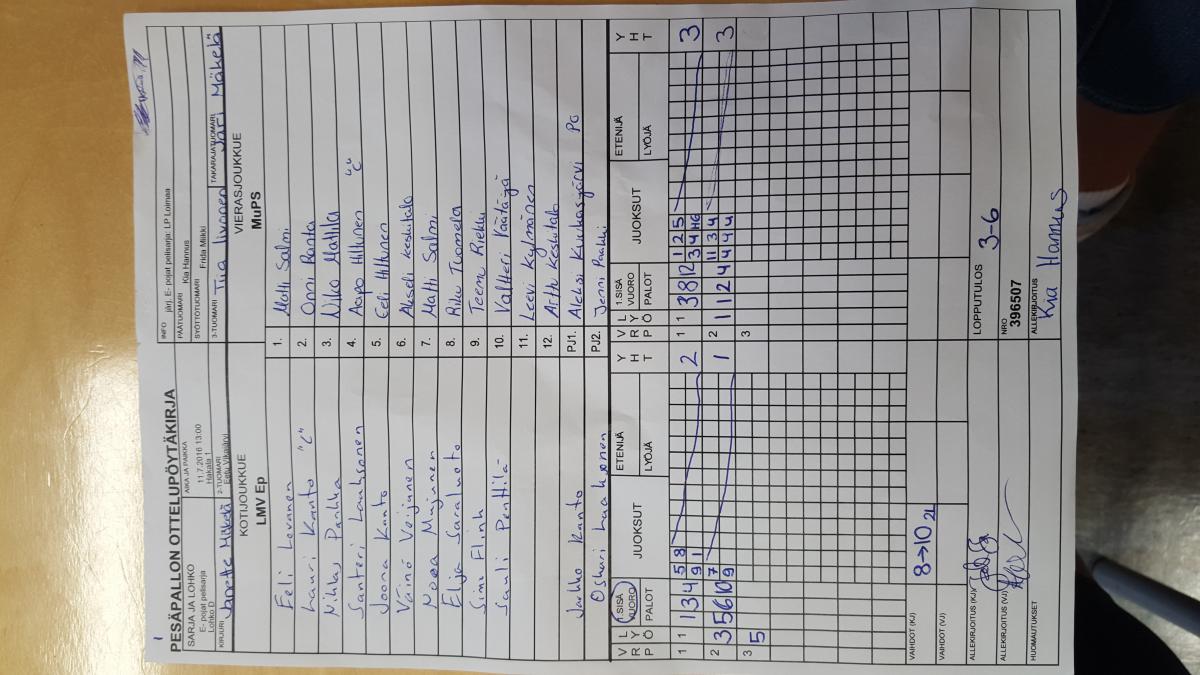 1
PESÄPALLON OTTELUPÖYTÄKIRJA
SARJA JA LOHKO
E- pojat pelisarja
Lohko D
AIKA JA PAIKKA
11.7.2016 13:00
Hakala 1
INFO järj. E- pojat pelisarja: LP Loimaa
PÄÄTUOMARI Kia Hannus
SYÖTTÖTUOMARI Frida Miikki
KIRJURI Janette Mäkelä
2-TUOMARI Eetu Vikajärvi
3-TUOMARI Tiia Iivonen
TAKARAJATUOMARI Jari Mäkelä
KOTIJOUKKUE
LMV Ep
VIERASJOUKKUE
MuPS
Eeli Lovanen 1. Matti Salmi
Lauri Kanto "C" 2. Onni Ranta
Niklas Panka 3. Niko Mattila
Santeri Lauksonen 4. Aapo Hiltunen "C"
Joona Kanto 5. Eeli Hiltunen
Väinö Voijanen 6. Akseli Keskitalo
Nooa Majanen 7. Matti Salmi
Elja Saraluoto 8. Riku Tuomela
Simo Flink 9. Teemu Riekki
Sauli Penttilä 10. Valtteri Päätöjä
11. Leevi Kylmänen
12. Arttu Keskitalo
Jarkko Kanto PJ1. Aleksi Kurkasjärvi PG
Oskari Laaksonen PJ2. Jenni Paakki
V R L Y P Ö 1.SISÄ VUORO PALOT JUOKSUT ETENIJÄ LYÖJÄ Y H T V R L Y P Ö 1.SISÄ VUORO PALOT JUOKSUT ETENIJÄ LYÖJÄ Y H T
1 1 1 3 4 5 8 2 1 1 3 8 12 1 2 5 3
9 1 3 4 H6
2 3 5 6 10 7 1 2 1 1 2 4 11 3 4 3
9 4 4 4
3 5 3
VAIHDOT (KJ) 8→10 2L
VAIHDOT (VJ)
LOPPUTULOS 3-6
ALLEKIRJOITUS (KJ)
ALLEKIRJOITUS (VJ)
NRO
396507
HUOMAUTUKSET
ALLEKIRJOITUS
Kia Hannus